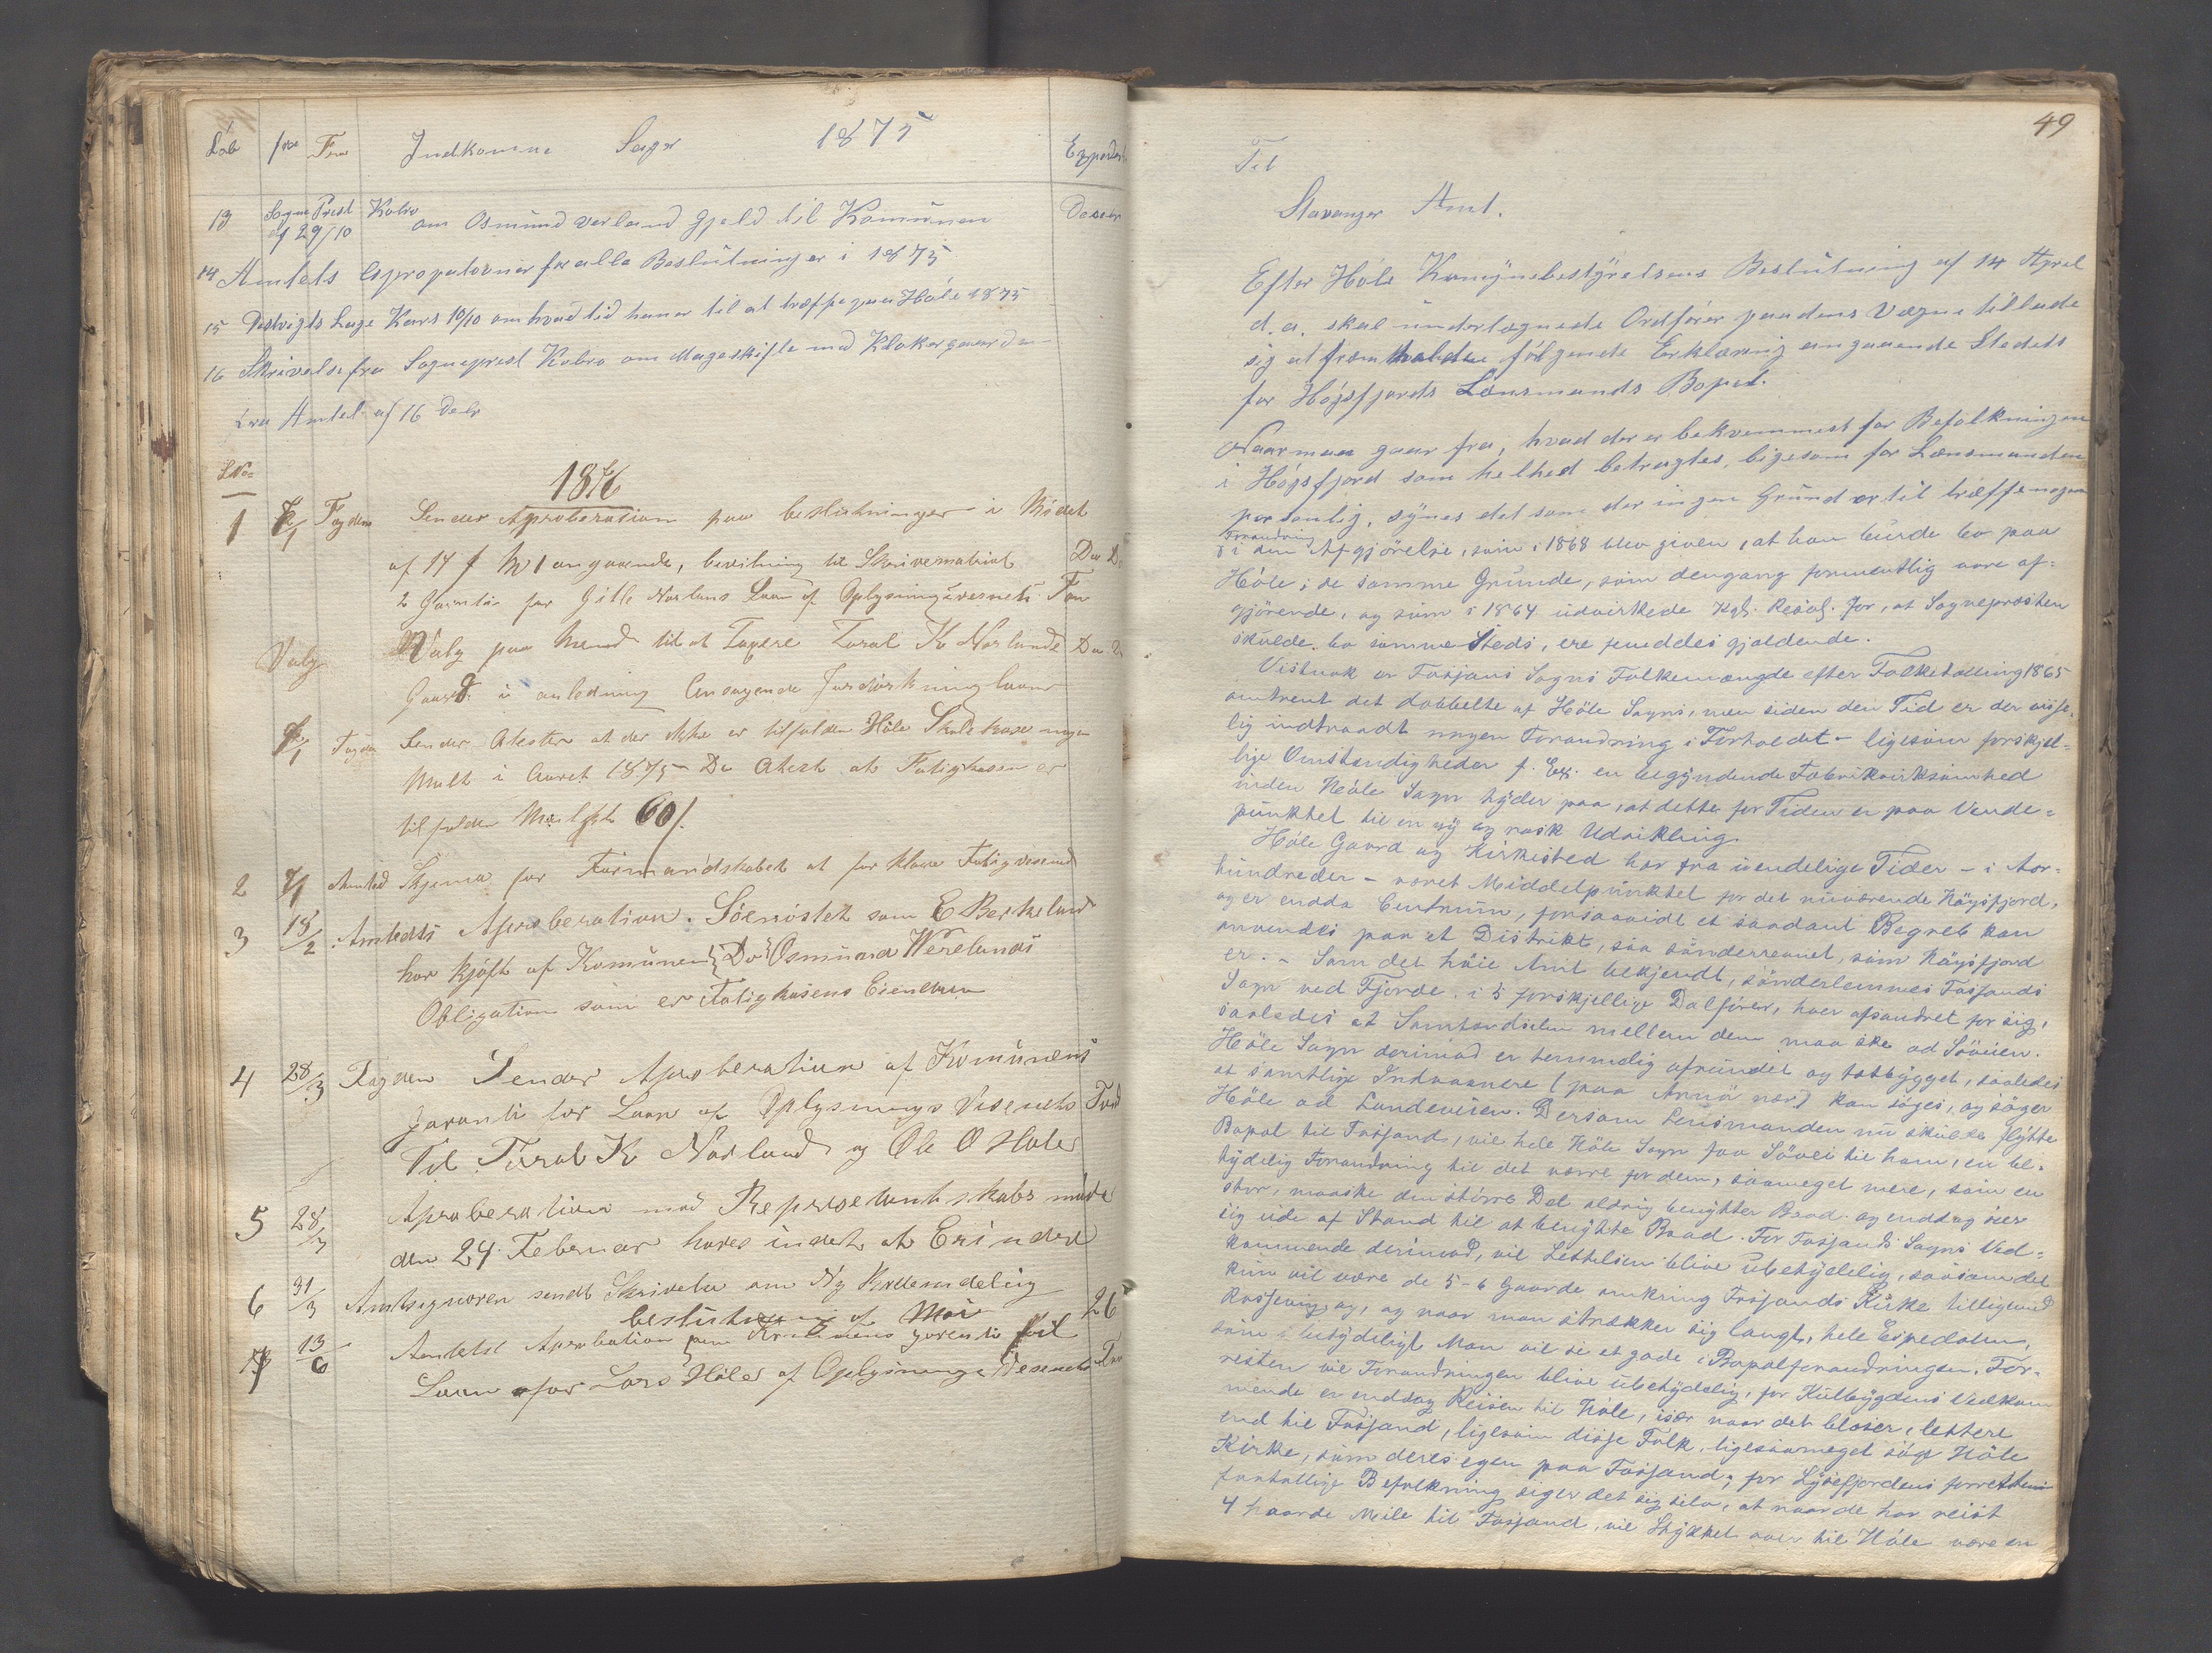 Löb fra Indkomne Sager 1875
13 Sogne Prest Kobro om Osmund Verland Gjeld til Komunen
af 29/10
14 Amtets for alle Beslutninger i 1875
15 10/10 om hvad tid han er til at træffe paa Höle 1875
16 Skrivelse fra Sogneprest Kobro om Mageskifte med Klokergaarden
fra Amtet af 16 Debr
1876
1 Fogden Sender Aproberation paa beslutninger i Mödet
af 14 angaaende, bevilning til Skrivematrial
2 for Norlans Laan af Oplysningsvesnets
Valg Valg paa Mend til at Taxere Toral K Norlunds
Gaard i anledning
Fogden Sender Atester at der ikke er tilfalden Höle Skolekasse nogen
Mult i Aaret 1875 Do Atest at Fatigkassen er
tilfalden 60
2 Amted Skjema for Formandskabet at forklare Fatigvesend
3 18/2 Amtedts Aproberation. som E Berkeland
har kjöft af Komunen Do Osmund Werelands
Obligation som er Fatigkasens Eiendom
4 28/3 Fogden Sender Aproberation af Komunens
garanti for Laan af Oplysnings Vesenets Fond
Til Toral K Norland og Ole O Hole
5 28/3 Aproberation med Represetantskabs möde
den 24 Februar haves indet at Erindre
6 31/3 sendt Skrivelse om Ny
beslutning af Mai 26
13/6 Amtets Aprobation om Komunens garanti til
Laan for Lars Höle af Oplysnings Vesenets
49
Til
Stavanger Amt.
Efter Höle Komunebestyrelsens Beslutning af 14 April
d. a. skal undertegnede Ordförer paa dens Vegne tillade
sig at fremholde fölgende Erklæring angaaende Stedets
for Högsfjords Lensmands Bopel.
Naar man gaar fra, hvad der er bekvemmest for Befolkningen
i Högsfjord som helhed betragtes, ligesom for Lensmanden
personlig, synes det som der ingen Grund er til træffe nogen
Forandring
i den Afgjörelse, som i 1868 blev given, at han burde bo paa
Höle; de samme Grunde, som dengang formentlig vare af-
gjörende, og som i 1864 udvirkede Kgl. Resol. for, at Sognepresten
skulde bo samme Steds, ere fremdeles gjældende.
Vistnok er Fosjans Sogns Folkemængde efter Folketælling 1865
omtrent det dobbelte af Höle Sogns, men siden den Tid er der visse-
lig indtraadt nogen Forandring i Forholdet – ligesom forskjel-
lige Omstendigheder f. Ex. en begyndende Fabrikvirksomhed
inden Höle Sogn tyder paa, at dette for Tiden er paa Vende-
punktet til en ny og rask Udvikling.
Höle Gaard og Kirkested har fra uendelige Tider – i Aar-
hundreder – været Middelpunktet for det nuværende Högsfjord,
og er endda Centrum, forsaavidt et saadant Begreb kan
anvendes paa et Distrikt, saa sönderrevet, som Högsfjord
er. – Som det höie Amt bekjendt, sönderlemmes Fosjands
Sogn ved Fjorde i 5 forskjellige Dalförer, hver afsondret for sig,
saaledes at Samferdselen mellem dem maa ske ad Söveien.
Höle Sogn derimod er temmelig afrundet og tætbygget, saaledes
at samtlige Indvaanere (paa Annö nær) kan söges, og söger
Höle ad Landeveien. Dersom Lensmanden nu skulde flytte
Bopæl til Fosjand, vil hele Höle Sogn faa Sövei til ham, en be-
tydelig Forandring til det værre for dem, saameget mere, som en
stor, maaske den större Del aldrig benytter Baad og enddog seer
sig ude af Stand til at benytte Baad. For Fosjands Sogns Ved-
kommende derimod, vil Lettelsen blive ubetydelig, saasom det
kun vil være de 5-6 Gaarde omkring Fosjands Kirke tilligemed
og, og naar man strækker sig langt, hele Espedalen,
som i betydeligt Mon vil se et gode i Bopælforandringen. For-
resten vil Forandringen blive ubetydelig, for Kulbygdens Vedkom-
mende er enddog Reisen til Höle, især naar det blæser, lettere
end til Fosjand, ligesom disse Folk, ligesaameget söge Höle
Kirke, som deres egen paa Fosjand; for Lysefjordens forresten
faatallige Befolkning siger det sig selv, at naar de har reist
4 haarde Mile til Fosjand, vil Stykket over til Höle være en